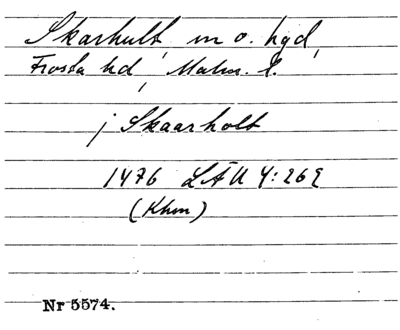 Skarhult, m o. hgd,
Frosta hd, Malm. l.
j Skaarholt
1476 LÄU 4:269
(Khm)
Nr 5574.